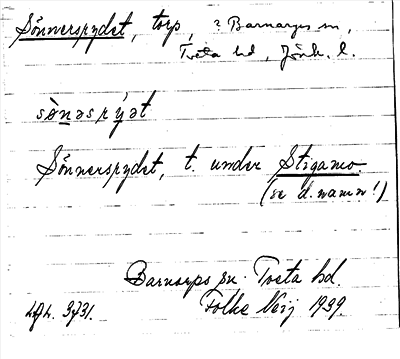 Sönnerspydet, torp, ? Barnarps sn,
Tveta hd, Jönk. l.
sònəspýət
Sönnerspydet, t. under Stigamo.
(se d. namn!)
Barnarps sn. Tveta hd.
Folke Neij 1939.